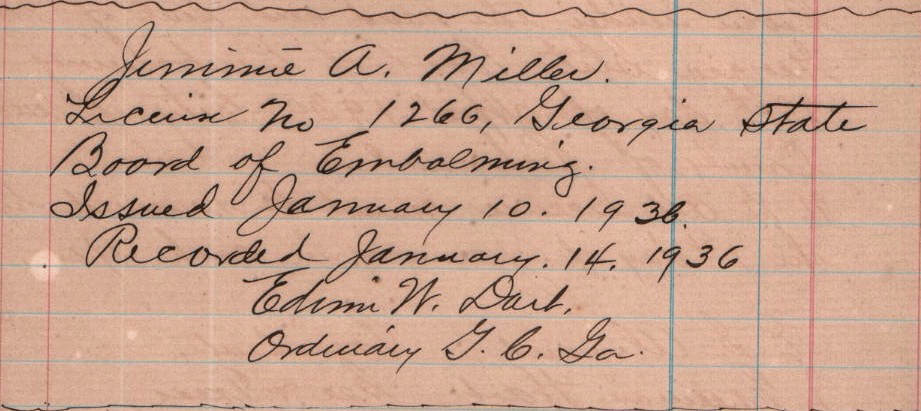 Jimmie A. Miller.
License No 1266, Georgia State
Board of Embalming.
Issued January 10. 1936.
Recorded January. 14. 1936
Edwin W. Dart.
Ordinary G. C. Ga.